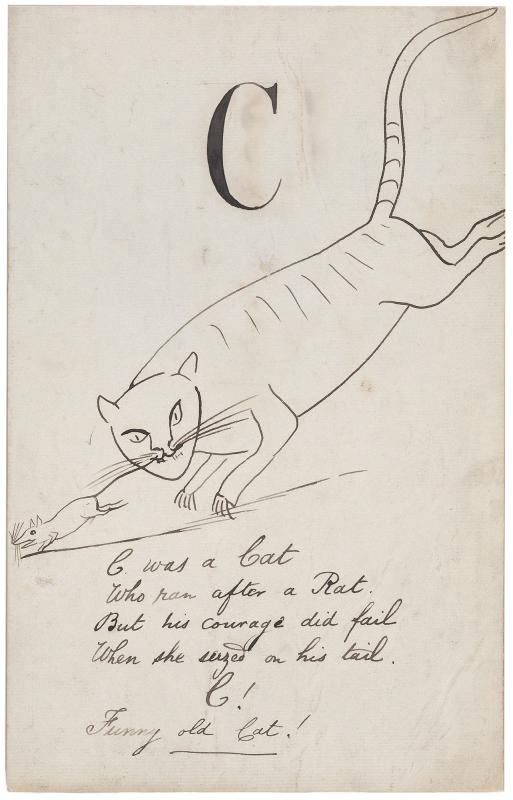 C
C. was a Cat
Who ran after a Rat.
But his courage did fail
When she seized on his tail.
C!
Funny old Cat!